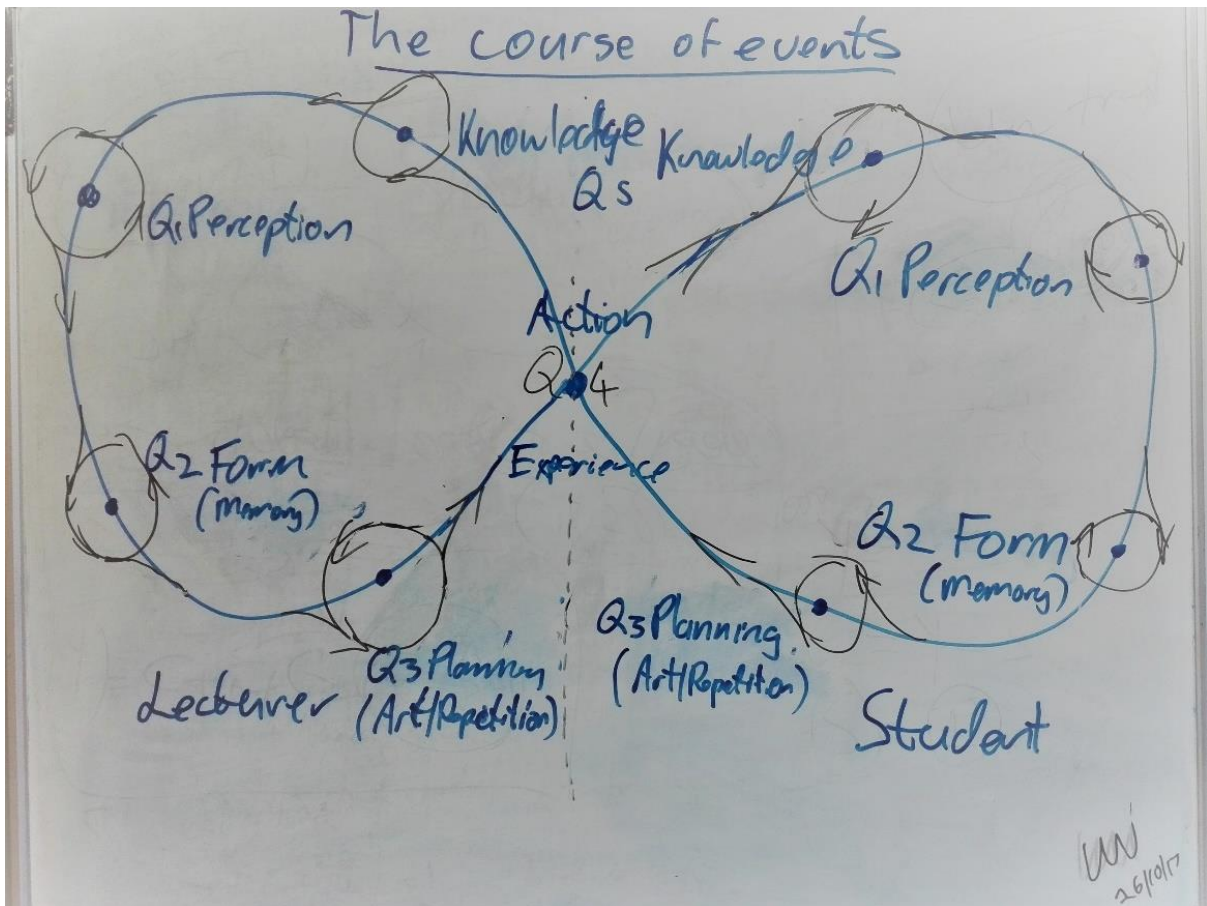 The course of events
Knowledge
Knowledge
Q5
Q1 Perception
Q1 Perception
Action
Q 4
Experience
Q2 Form
(Memory)
Q2 Form
(Memory)
Q3 Planning
(Art/Repetition)
Q3 Planning
(Art/Repetition)
Lecturer
Student
26/10/17